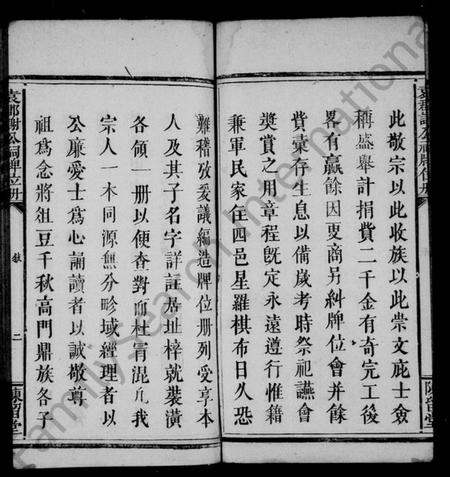 此敬宗以此收族以此崇文庇士僉
稱盛舉計捐費二千金有奇完工後
畧有贏餘因更商另糾牌位會并餘
貲彙存生息以備歲考時祭祀讌會
奬賞之用章程既定永遠遵行惟籍
兼軍民家住四邑星羅棋布日久恐
難稽攷爰議編造牌位册列爰享本
人及其子名字詳註居址梓就裝潢
各領一册以便查對而杜冐混凢我
宗人一本同源無分畛域經理者以
公廉愛士爲心誦讀者以誠敬尊
祖爲念將俎豆千秋高門鼎族各子
袁郡謝公祠牌位册
敘
二
陳留堂
袁郡謝公祠牌位册
陳留堂
FamilySearch International